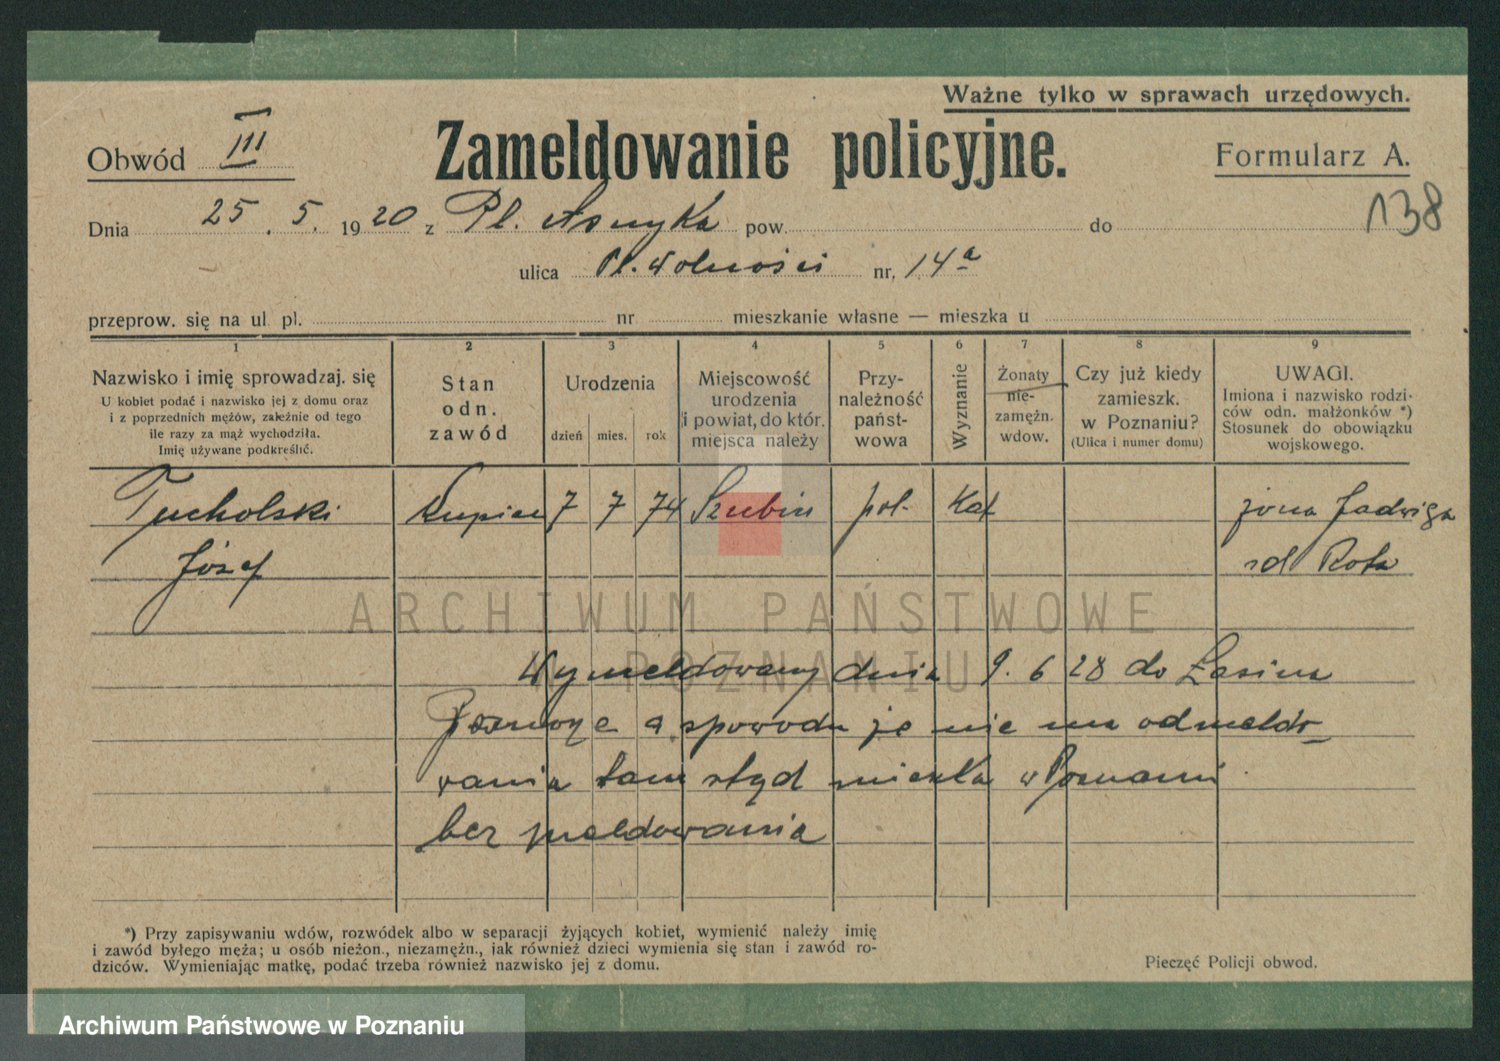 Ważne tylko w sprawach urzędowych.
Obwód III
Zameldowanie policyjne.
Formularz A.
138
Dnia 25. 5. 1920 z Pl. Asnyka pow. do
ulica Pl. Wolności nr. 14a
przeprow. się na ul. pl. nr mieszkanie własne — mieszka u
1 2 3 4 5 6 7 8 9
Nazwisko i imię sprowadzaj. się
U kobiet podać i nazwisko jej z domu oraz
i z poprzednich mężów, zależnie od tego
ile razy za mąż wychodziła.
Imię używane podkreślić.
Stan
odn.
zawód
Urodzenia
dzień mies. rok
Miejscowość
urodzenia
i powiat, do któr.
miejsca należy
Przy-
należność
państ-
wowa
Wyznanie
Żonaty
nie-
zamężn.
wdow.
Czy już kiedy
zamieszk.
w Poznaniu?
(Ulica i numer domu)
UWAGI.
Imiona i nazwisko rodzi-
ców odn. małżonków *)
Stosunek do obowiązku
wojskowego.
Tucholski Kupiec 7 7 74 Szubin pol. Kat żona Jadwiga
Józef zd Rota
Wymeldowany dnia 9. 6 28 do Łasina
Pomorze a spowodu że nie ma odmeldo-
wania tam stąd mieszka w Poznaniu
bez meldowania
*) Przy zapisywaniu wdów, rozwódek albo w separacji żyjących kobiet, wymienić należy imię
i zawód byłego męża; u osób nieżon., niezamężn., jak również dzieci wymienia się stan i zawód ro-
dziców. Wymieniając matkę, podać trzeba również nazwisko jej z domu.
Pieczęć Policji obwod.
ARCHIWUM PAŃSTWOWE
W POZNANIU
Archiwum Państwowe w Poznaniu